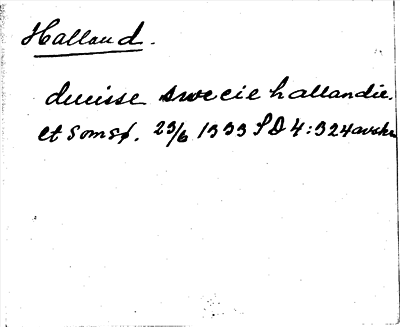 Halland.
ducisse swecie hallandie.
et Somsø. 23/6 1333 SD 4:324 avskr